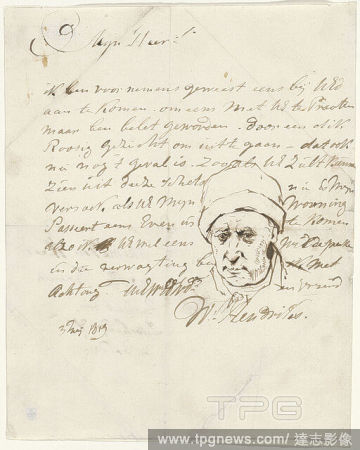 Mijn Heer
ik ben voornemens geweest eens bij UEd
aan te komen om eens met UE te spreeken
maar ben belet geworden Door een dik
Roosig gezicht om uitte gaan - dat ook
nu nog 't geval is. Zo als UE zult kunnen
Zien uit deeze schets nu is Mijn
versoek als UE Mijn Wooning
Passeert eens Even in te komen
also ik UE wel eens
in die verwagting met
Achting en vriend
Wn. Hendriks.
3 Meij 1819
TPG
www.tpgnews.com/達志影像